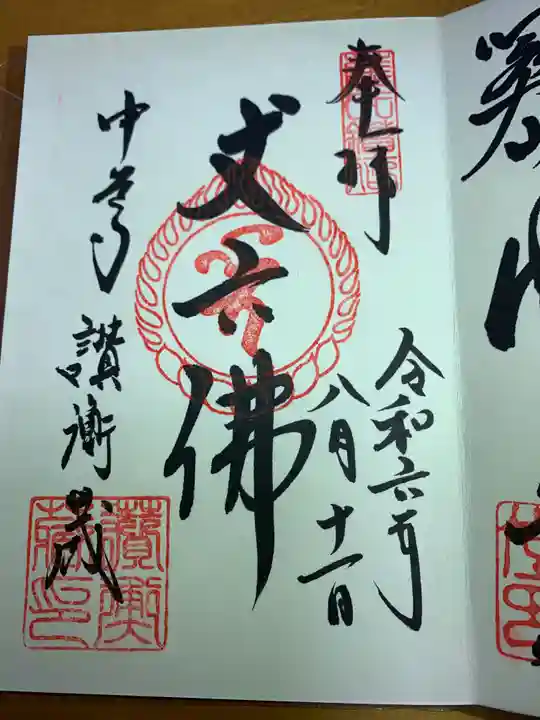 奉拝
令和六年
八月十一日
丈六佛
中尊寺 讃衡蔵
讃衡蔵印